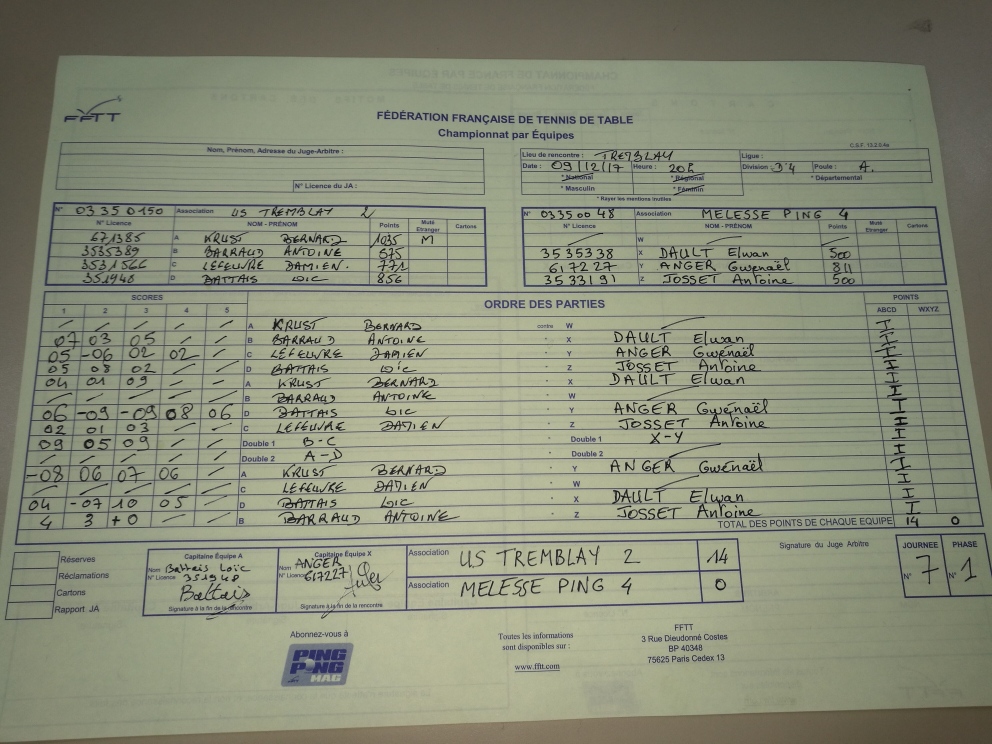 FFTT
FÉDÉRATION FRANÇAISE DE TENNIS DE TABLE
Championnat par Équipes
C.S.F. 13.2.0.4a
Nom, Prénom, Adresse du Juge-Arbitre :
N° Licence du JA :
Lieu de rencontre : TREMBLAY Ligue :
Date : 09/12/17 Heure : 20h Division : 34 Poule : A.
* National * Régional * Départemental
* Masculin * Féminin
* Rayer les mentions inutiles
N° 03350150 Association US TREMBLAY 2
N° Licence NOM - PRÉNOM Points Muté Etranger Cartons
671385 A KRUST BERNARD 1035 M
3535389 B BARRAUD ANTOINE 675
3531566 C LEFEUVRE DAMIEN. 771
351948 D BATTAIS LOIC 856
N° 03350048 Association MELESSE PING 4
N° Licence NOM - PRÉNOM Points Muté Etranger Cartons
W
3535338 X DAULT Elwan 500
617227 Y ANGER Gwenaël 811
3533191 Z JOSSET Antoine 500
SCORES ORDRE DES PARTIES POINTS
1 2 3 4 5 ABCD WXYZ
/ / / / / A KRUST BERNARD contre W
07 03 05 / / B BARRAUD ANTOINE " X DAULT Elwan
05 -06 02 02 / C LEFEUVRE DAMIEN " Y ANGER Gwénaël
05 08 02 / / D BATTAIS LOIC " Z JOSSET Antoine
04 01 09 / / A KRUST BERNARD " X DAULT Elwan
/ / / / / B BARRAUD ANTOINE " W
06 -09 -09 08 06 D BATTAIS LOIC " Y ANGER Gwénaël
02 01 03 / / C LEFEUVRE DAMIEN " Z JOSSET Antoine
09 05 09 / / Double 1 B-C " Double 1 X-Y
/ / / / / Double 2 A-D " Double 2
-08 06 07 06 / A KRUST BERNARD " Y ANGER Gwénaël
/ / / / / C LEFEUVRE DAMIEN " W
04 -07 10 05 / D BATTAIS LOIC " X DAULT Elwan
4 3 +0 / / B BARRAUD ANTOINE " Z JOSSET Antoine
TOTAL DES POINTS DE CHAQUE EQUIPE 14 0
Réserves
Réclamations
Cartons
Rapport JA
Capitaine Équipe A
Nom Battais Loïc
N° Licence 351948
Battais
Signature à la fin de la rencontre
Capitaine Équipe X
Nom ANGER
N° Licence 617227
Signature à la fin de la rencontre
Association US TREMBLAY 2 14
Association MELESSE PING 4 0
Signature du Juge Arbitre
JOURNEE PHASE
N° 7 N° 1
Abonnez-vous à
PING PONG MAG
Toutes les informations
sont disponibles sur :
www.fftt.com
FFTT
3 Rue Dieudonné Costes
BP 40348
75625 Paris Cedex 13